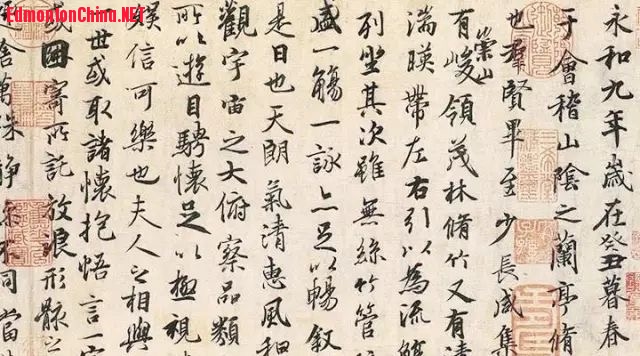 EdmontonChina.NET
永和九年歲在癸丑暮春
于會稽山陰之蘭亭脩
也群賢畢至少長咸集
有崇山峻領茂林脩竹又有清
湍暎帶左右引以為流觴
列坐其次雖無絲竹管
盛一觴一詠亦足以暢叙
是日也天朗氣清惠風和
觀宇宙之大俯察品類
所以遊目騁懷足以極視
娛信可樂也夫人之相與
世或取諸懷抱悟言一室
或因寄所託放浪形骸之
舍萬殊靜不同當